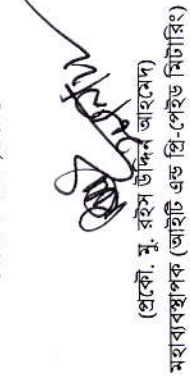 (প্রকৌ. মু. রইস উদ্দিন আহমেদ)
মহাব্যবস্থাপক (আইটি এন্ড প্রি-পেইড মিটারিং)